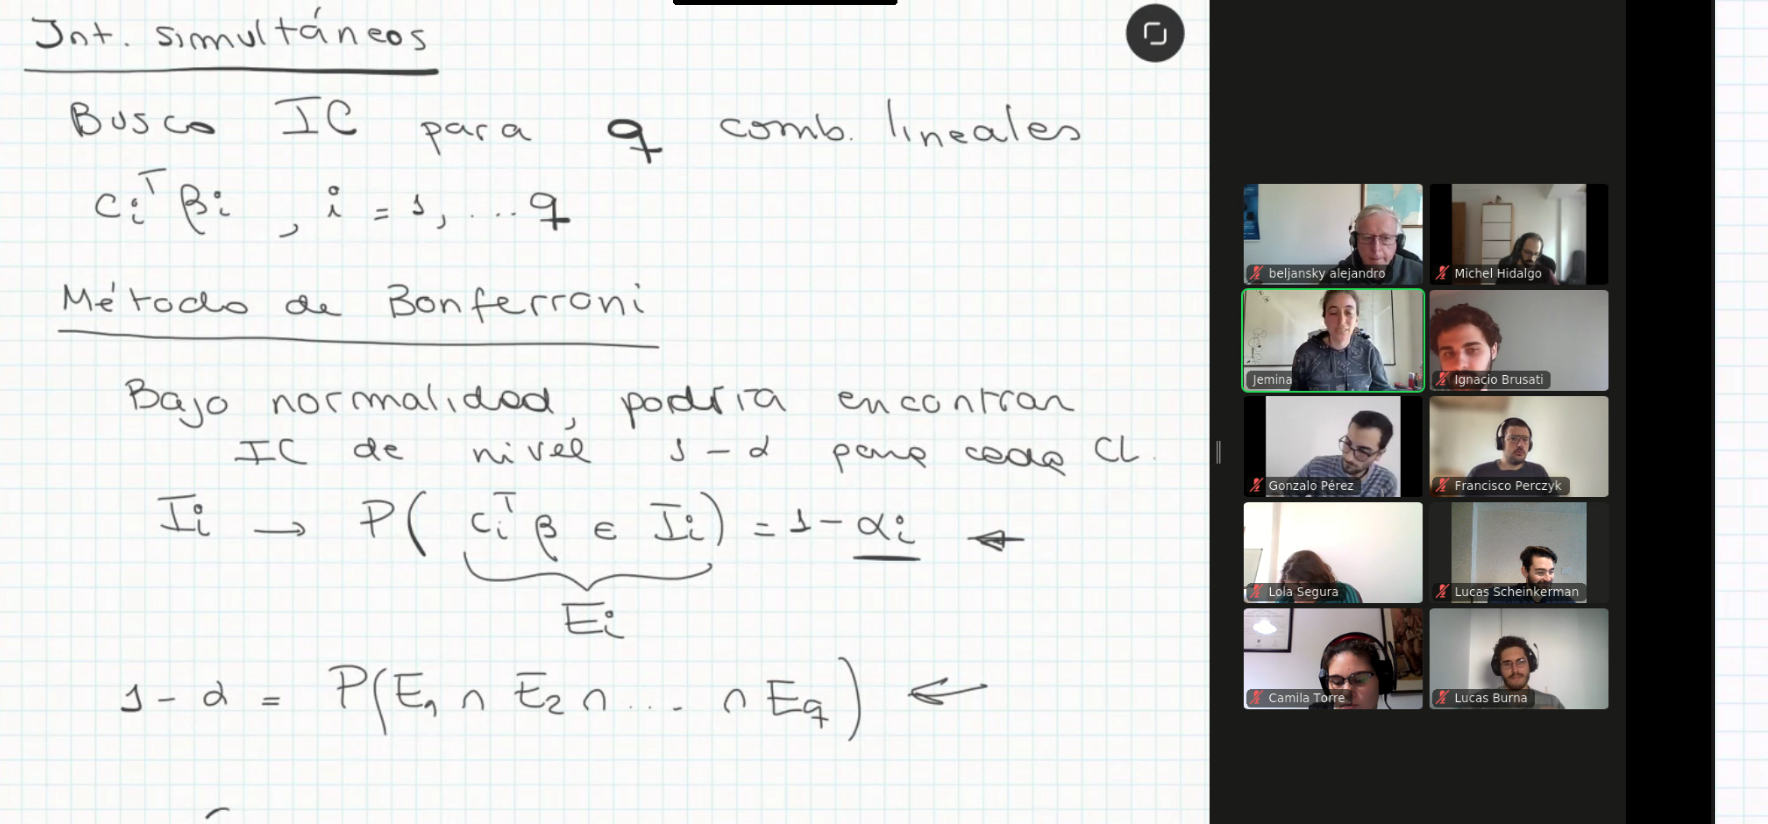 Int. simultáneos
Busco IC para q comb. lineales
cᵢᵀ βᵢ , i = 1, ... q
Método de Bonferroni
Bajo normalidad, podría encontrar
IC de nivel 1 - α para cada CL.
Iᵢ → P( cᵢᵀ β ∈ Iᵢ ) = 1 - αᵢ ←
Eᵢ
1 - α = P(E₁ ∩ E₂ ∩ ... ∩ E_q) ←
beljansky alejandro
Michel Hidalgo
Jemina
Ignacio Brusati
Gonzalo Pérez
Francisco Perczyk
Lola Segura
Lucas Scheinkerman
Camila Torre
Lucas Burna